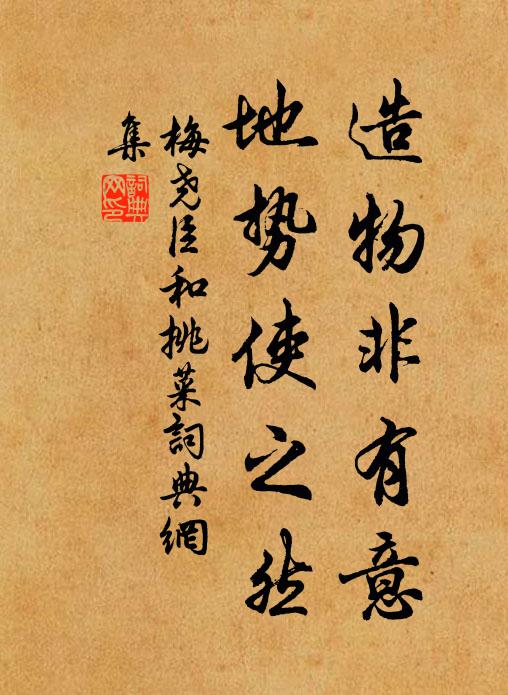 造物非有意
地势使之然
梅尧臣和挑菜詞典網
集
詞典
网印